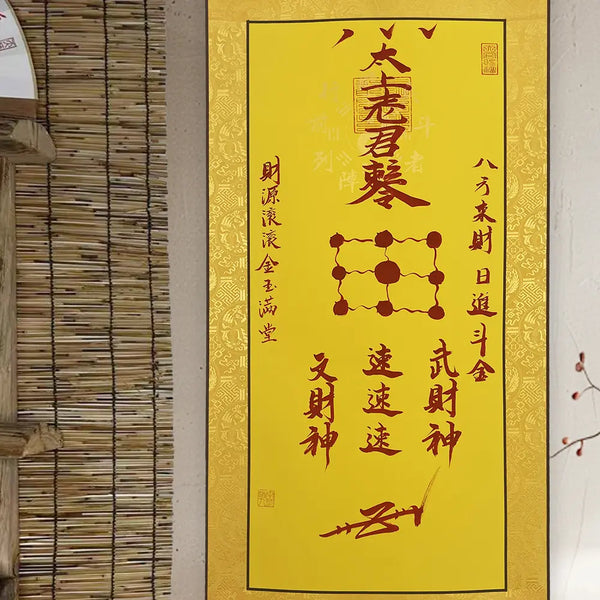 太上老君敕令
八方来財 日進斗金
武財神
速速速
文財神
財源滚滚 金玉满堂